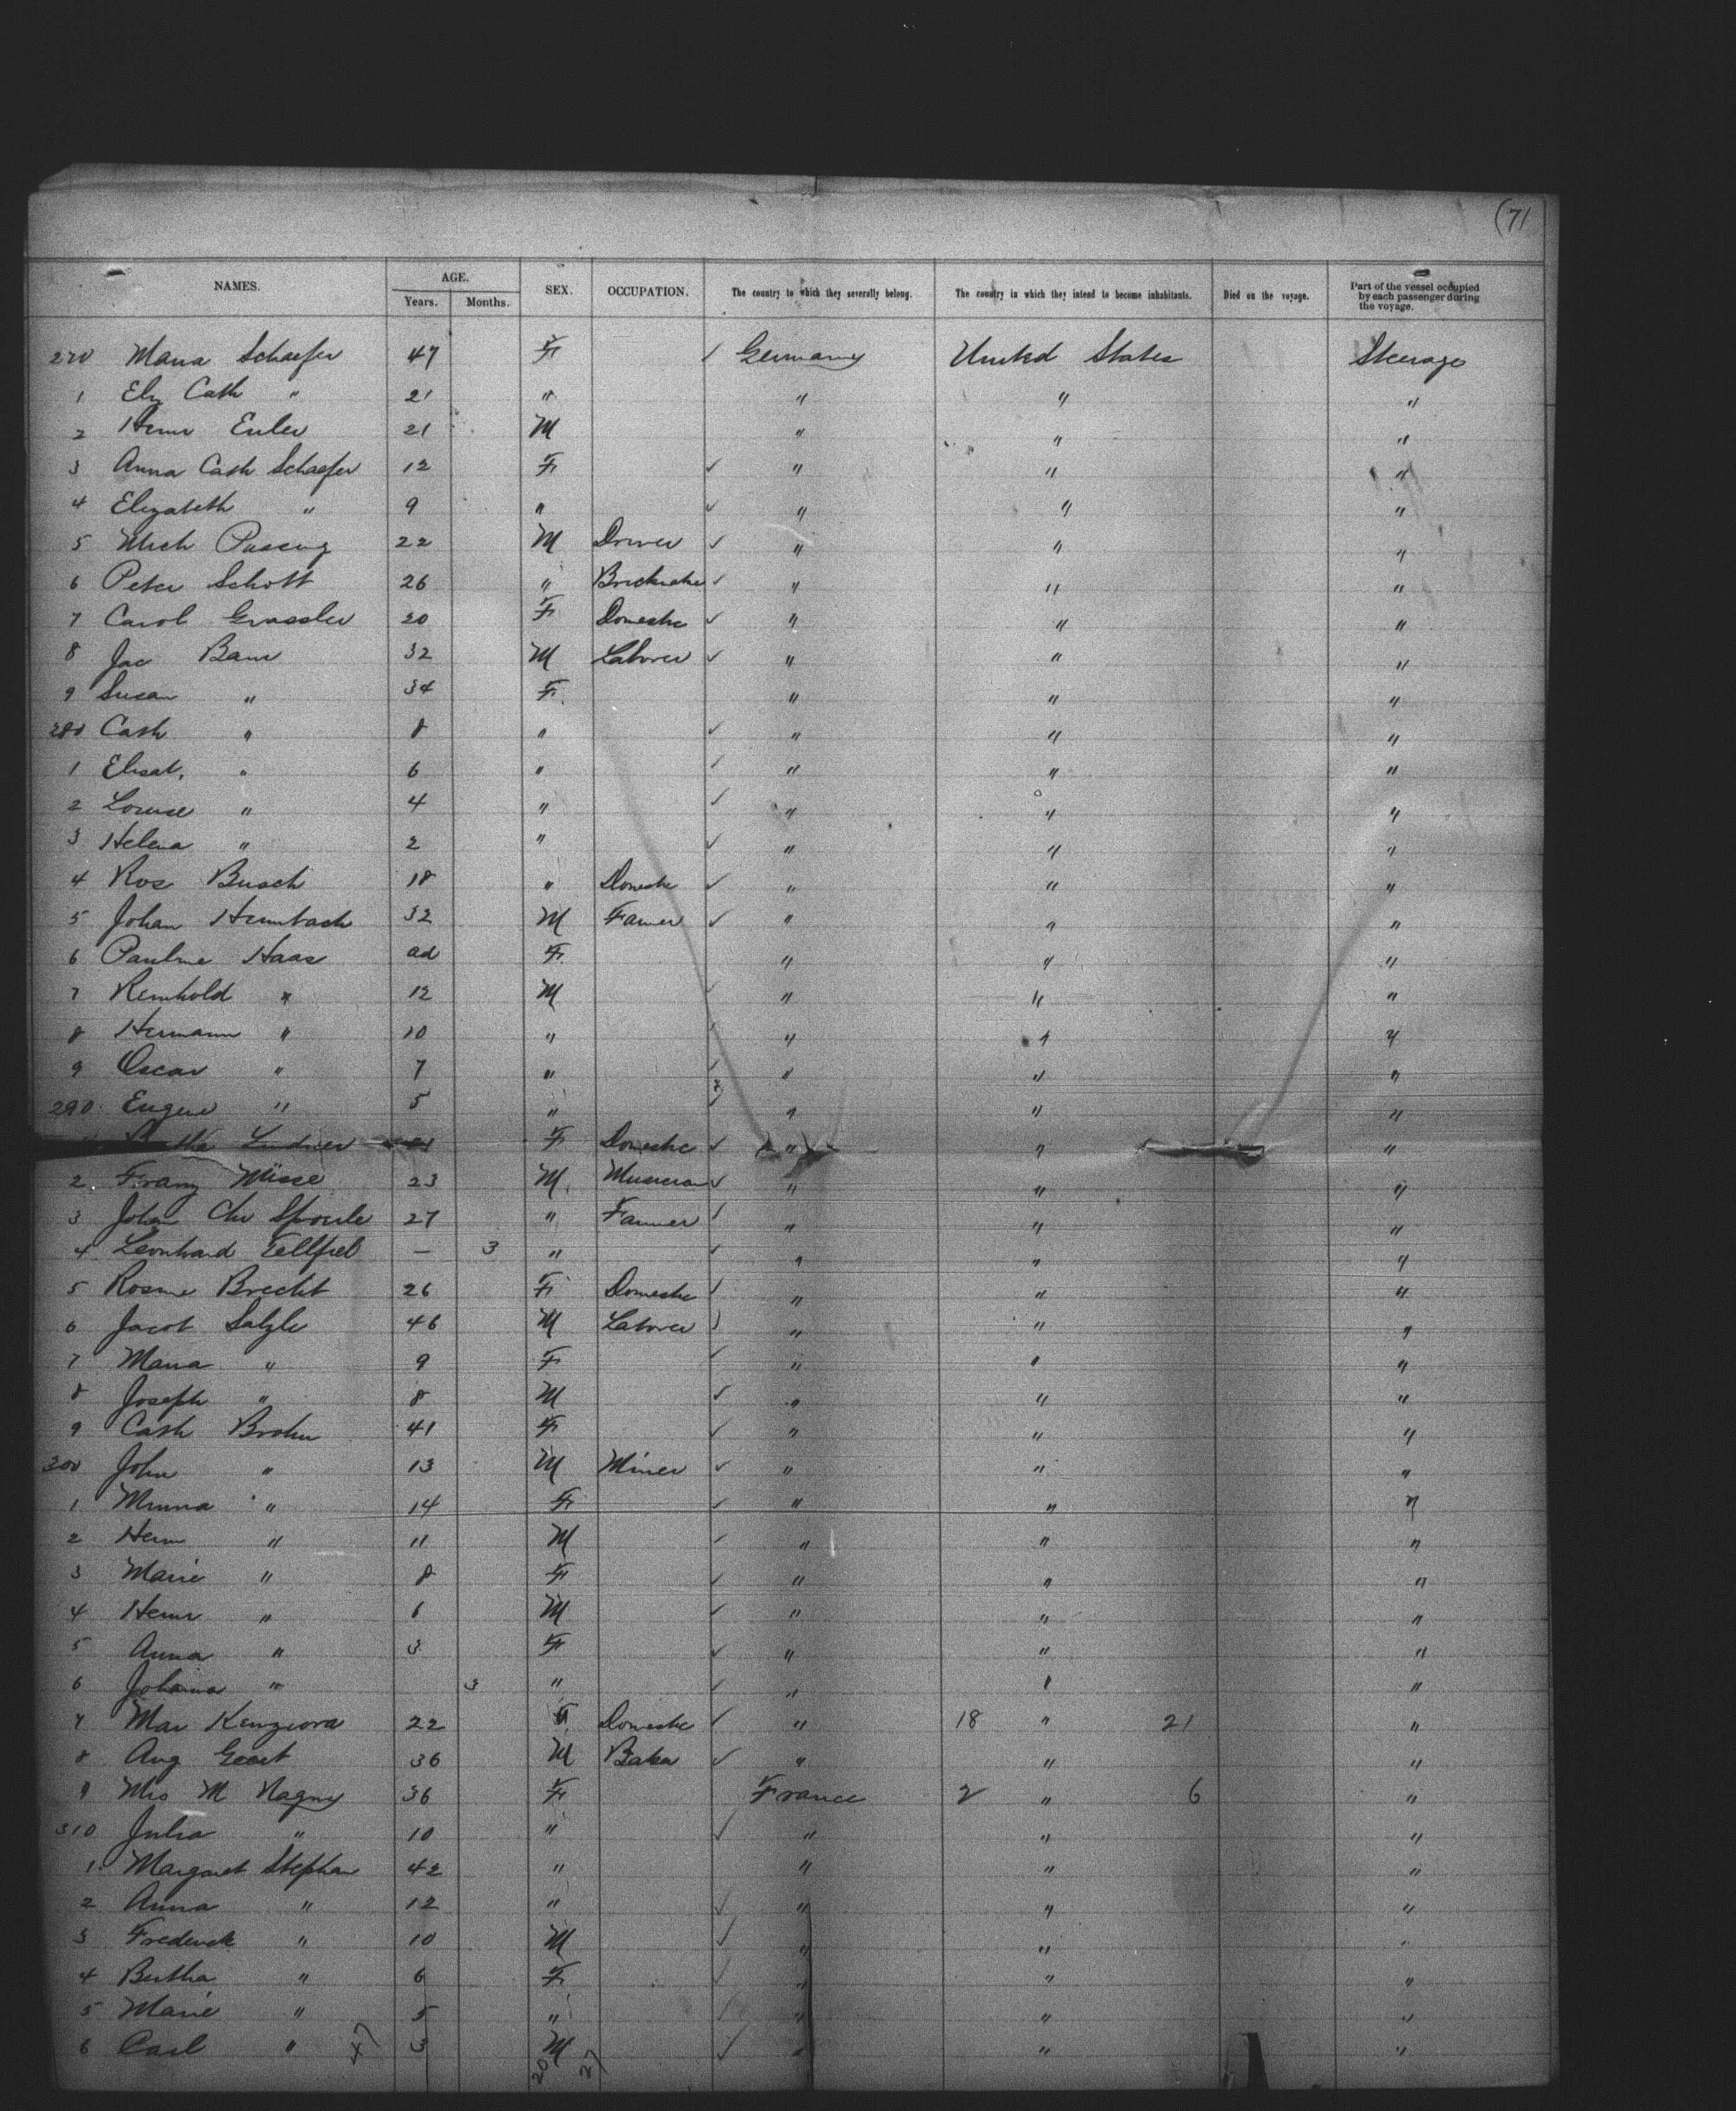 (71
NAMES. AGE. Years. Months. SEX. OCCUPATION. The country to which they severally belong. The country in which they intend to become inhabitants. Died on the voyage. Part of the vessel occupied by each passenger during the voyage.
270 Maria Schaefer 47 F Germany United States Steerage
1 Eliz Cath " 21 " " " "
2 Heinr Euler 21 M " " "
3 Anna Cath Schaefer 12 F " " "
4 Elizabeth " 9 " " " "
5 Mich 22 M Driver " " "
6 Peter Schott 26 " " " "
7 Carol Grassler 20 F Domestic " " "
8 Jac Baur 32 M Laborer " " "
9 Susan " 34 F " " "
280 Cath " 8 " " " "
1 Elisab. " 6 " " " "
2 Louise " 4 " " " "
3 Helena " 2 " " " "
4 Ros Busch 18 " Domestic " " "
5 Johan Heimbach 32 M Farmer " " "
6 Pauline Haas ad F " " "
7 Reinhold " 12 M " " "
8 Hermann " 10 " " " "
9 Oscar " 7 " " " "
290 Eugene " 5 " " " "
Lindner F Domestic " " "
2 Franz 23 M Musician " " "
3 Johan Chr 27 " Farmer " " "
4 Leonhard — 3 " " " "
5 Rosine Brecht 26 F Domestic " " "
6 Jacob Salzle 46 M Laborer " " "
7 Maria " 9 F " " "
8 Joseph " 8 M " " "
9 Cath Brohm 41 F " " "
300 John " 13 M Miner " " "
1 Minna " 14 F " " "
2 Herm " 11 M " " "
3 Marie " 8 F " " "
4 Heinr " 6 M " " "
5 Anna " 3 F " " "
6 Johanna " 3 " " " "
7 Mar 22 F Domestic " 18 " 21 "
8 Aug Geert 36 M Baker " " "
9 Mrs M Nagny 36 F France 2 " 6 "
310 Julia " 10 " " " "
1 Margaret Stephan 42 " " " "
2 Anna " 12 " " " "
3 Frederick " 10 M " " "
4 Bertha " 6 F " " "
5 Marie " 5 " " " "
6 Carl " 3 M " " "
47 20 27